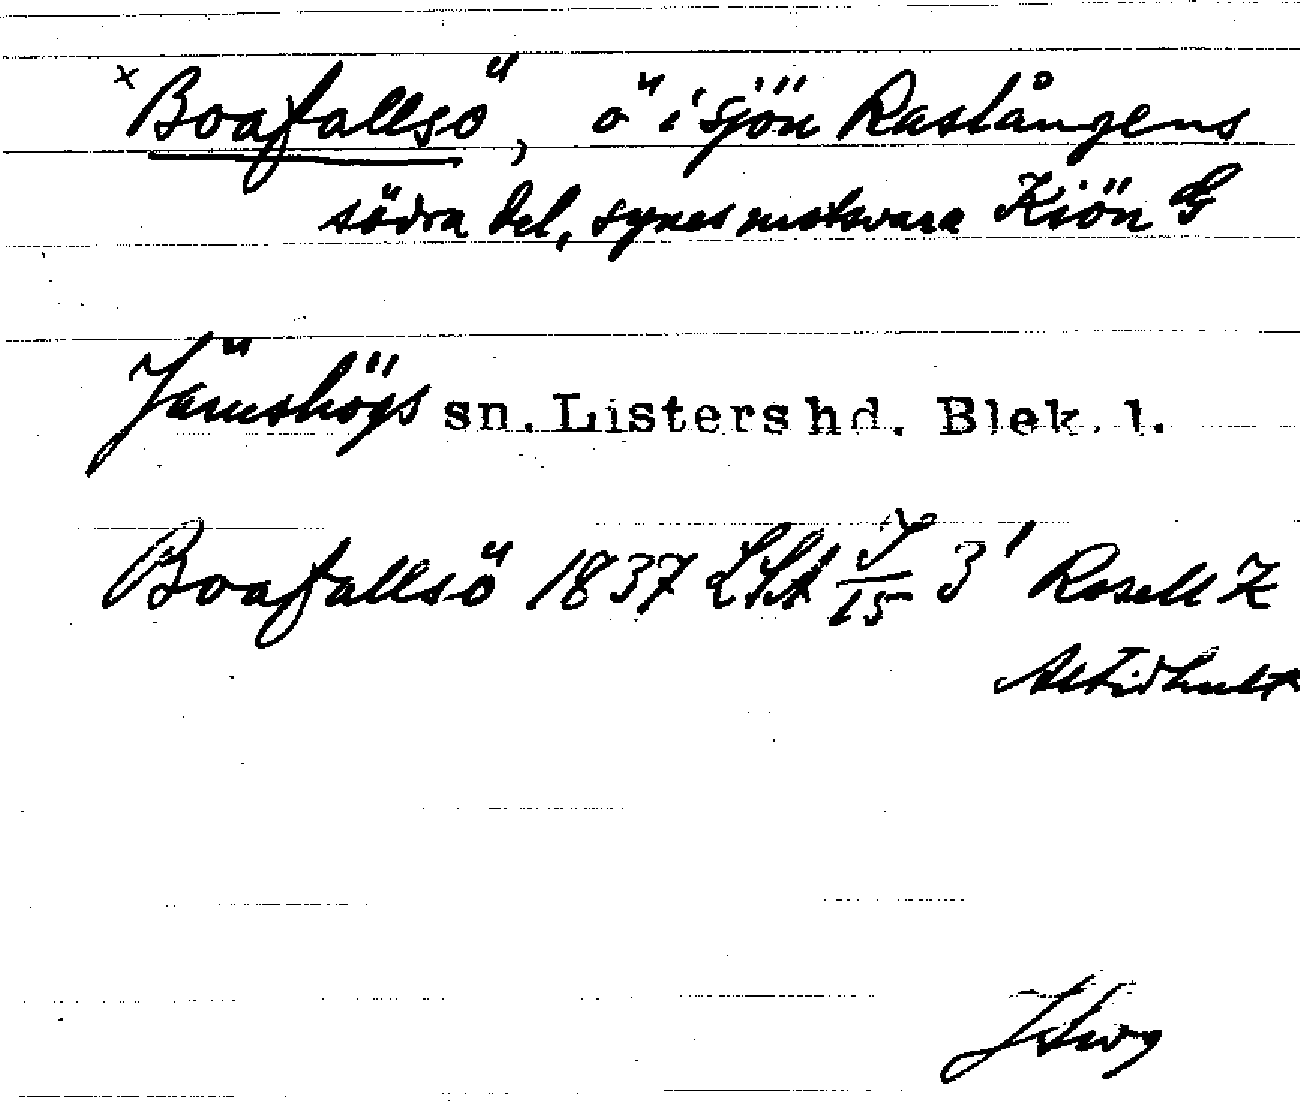 x Boafallsö, ö i sjön Raslångens
södra del, synes motsvara Kiön G
Jämshögs sn. Listers hd. Blek. l.
Boafallsö 1837 LSA J/15 3' Rosell Z
Altidhult